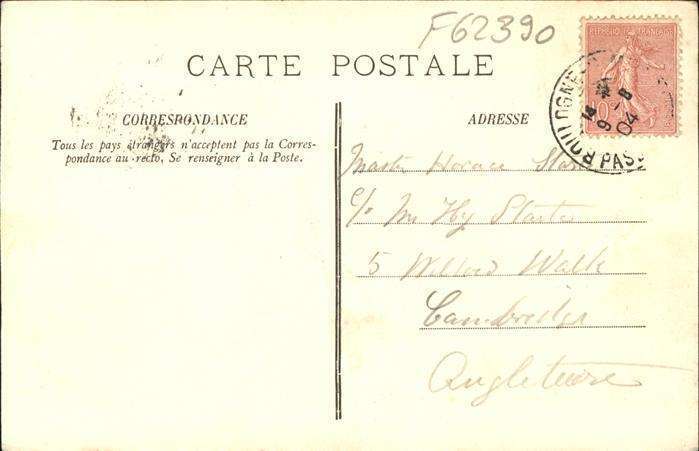 F62390
CARTE POSTALE
CORRESPONDANCE
Tous les pays étrangers n'acceptent pas la Corres-
pondance au recto, Se renseigner à la Poste.
ADRESSE
REPUBLIQUE FRANÇAISE
BOULOGNE PAS
9 - 8
04
Master Horace
c/o Mr Hy
5 Willow Walk
Cambridge
Angleterre